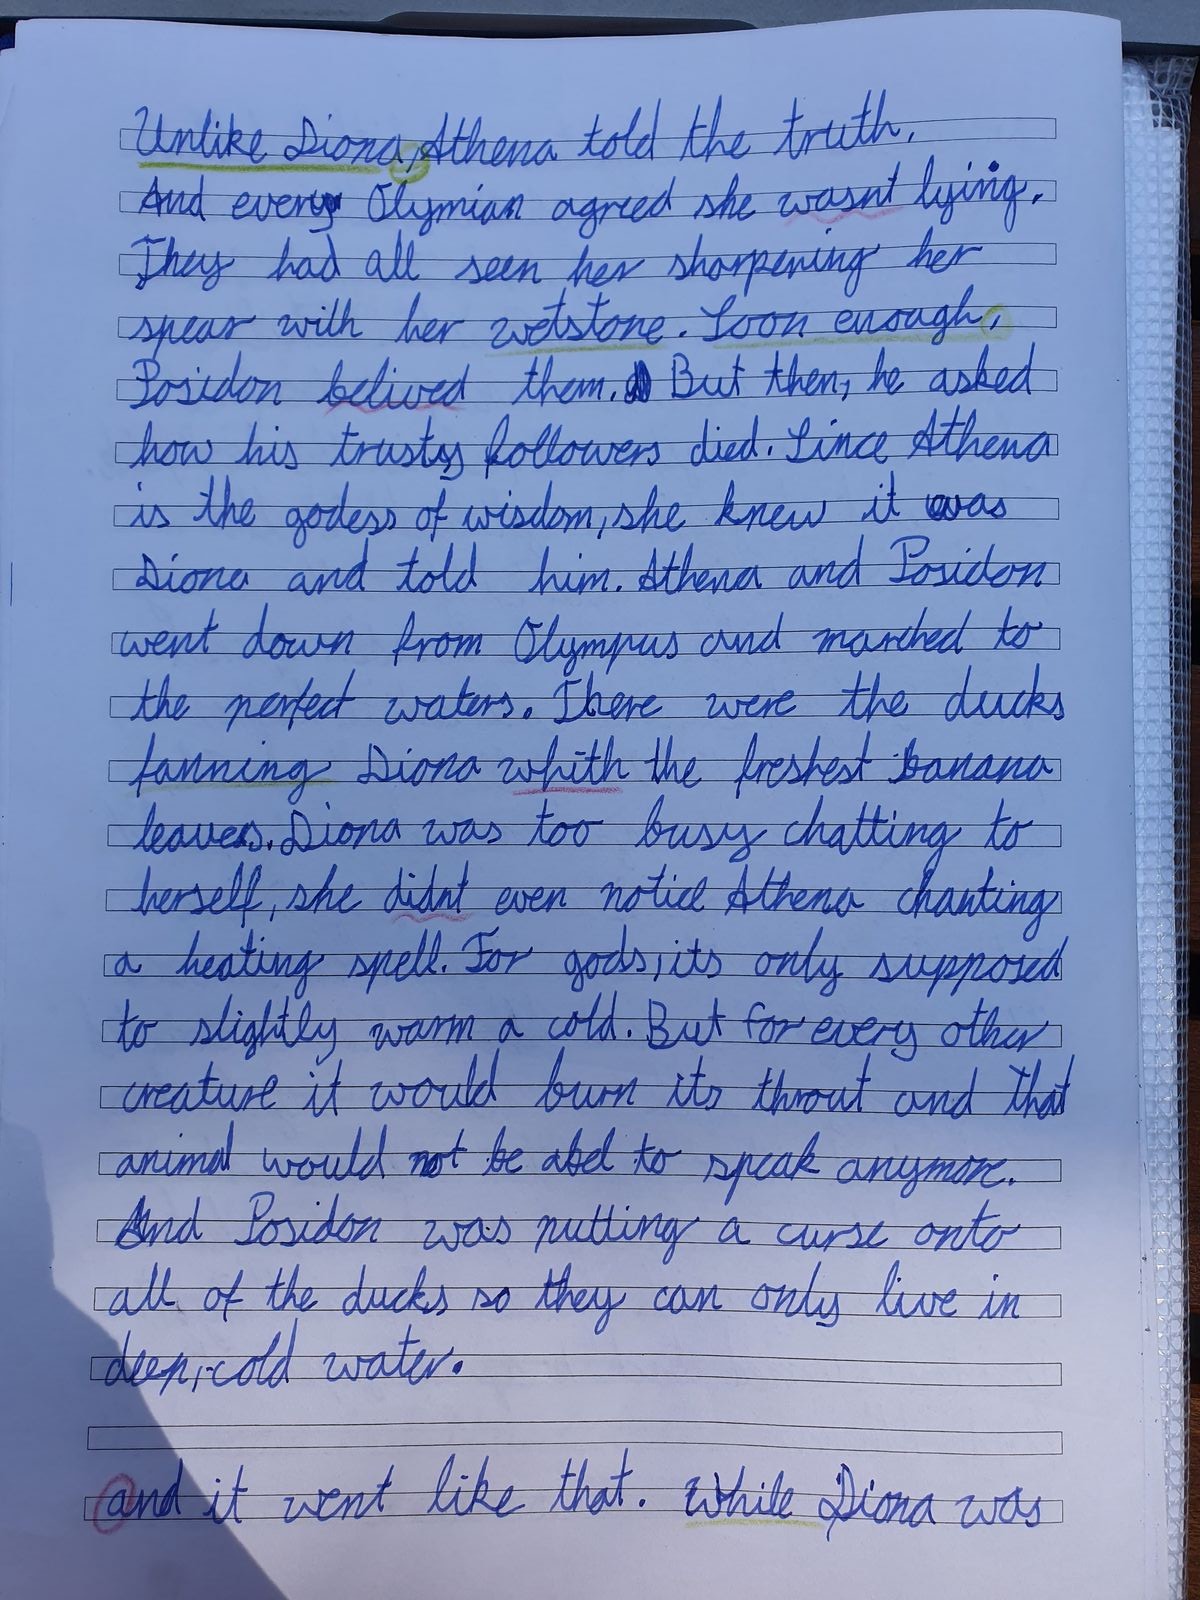 Unlike Diona, Athena told the truth.
And every Olymian agreed she wasnt lying.
They had all seen her sharpening her
spear with her wetstone. Soon enough,
Posidon belived them. But then, he asked
how his trusty followers died. Since Athena
is the godess of wisdom, she knew it was
Diona and told him. Athena and Posidon
went down from Olympus and marched to
the perfect waters. There were the ducks
fanning Diona whith the freshest banana
leaves. Diona was too busy chatting to
herself, she didnt even notice Athena chanting
a heating spell. For gods, its only supposed
to slightly warm a cold. But for every other
creature it would burn its throut and that
animal would not be abel to speak anymore.
And Posidon was putting a curse onto
all of the ducks so they can only live in
deep, cold water.
and it went like that. While Diona was